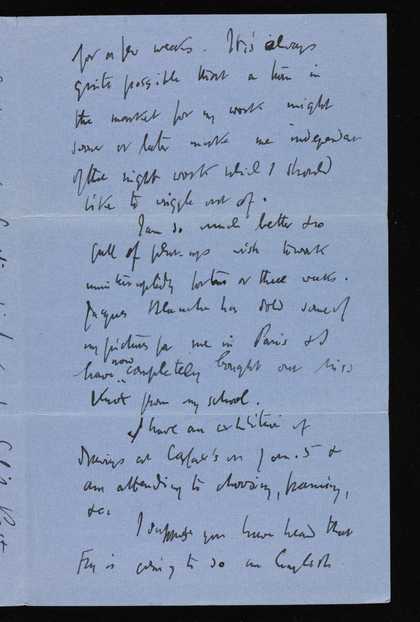 for a few weeks. It is always
quite possible that a turn in
the market for my work might
sooner or later make me independent
of the night work which I should
like to wriggle out of.
I am so much better & so
full of work
uninterruptedly for two or three weeks.
Jacques Blanche has sold some of
my pictures for me in Paris & I
have now completely bought out Miss
from my school.
I have an exhibition of
drawings at Carfax's on Jan. 5 &
am attending to choosing, framing,
&c.
I suppose you have heard that
Fry is going to do an English